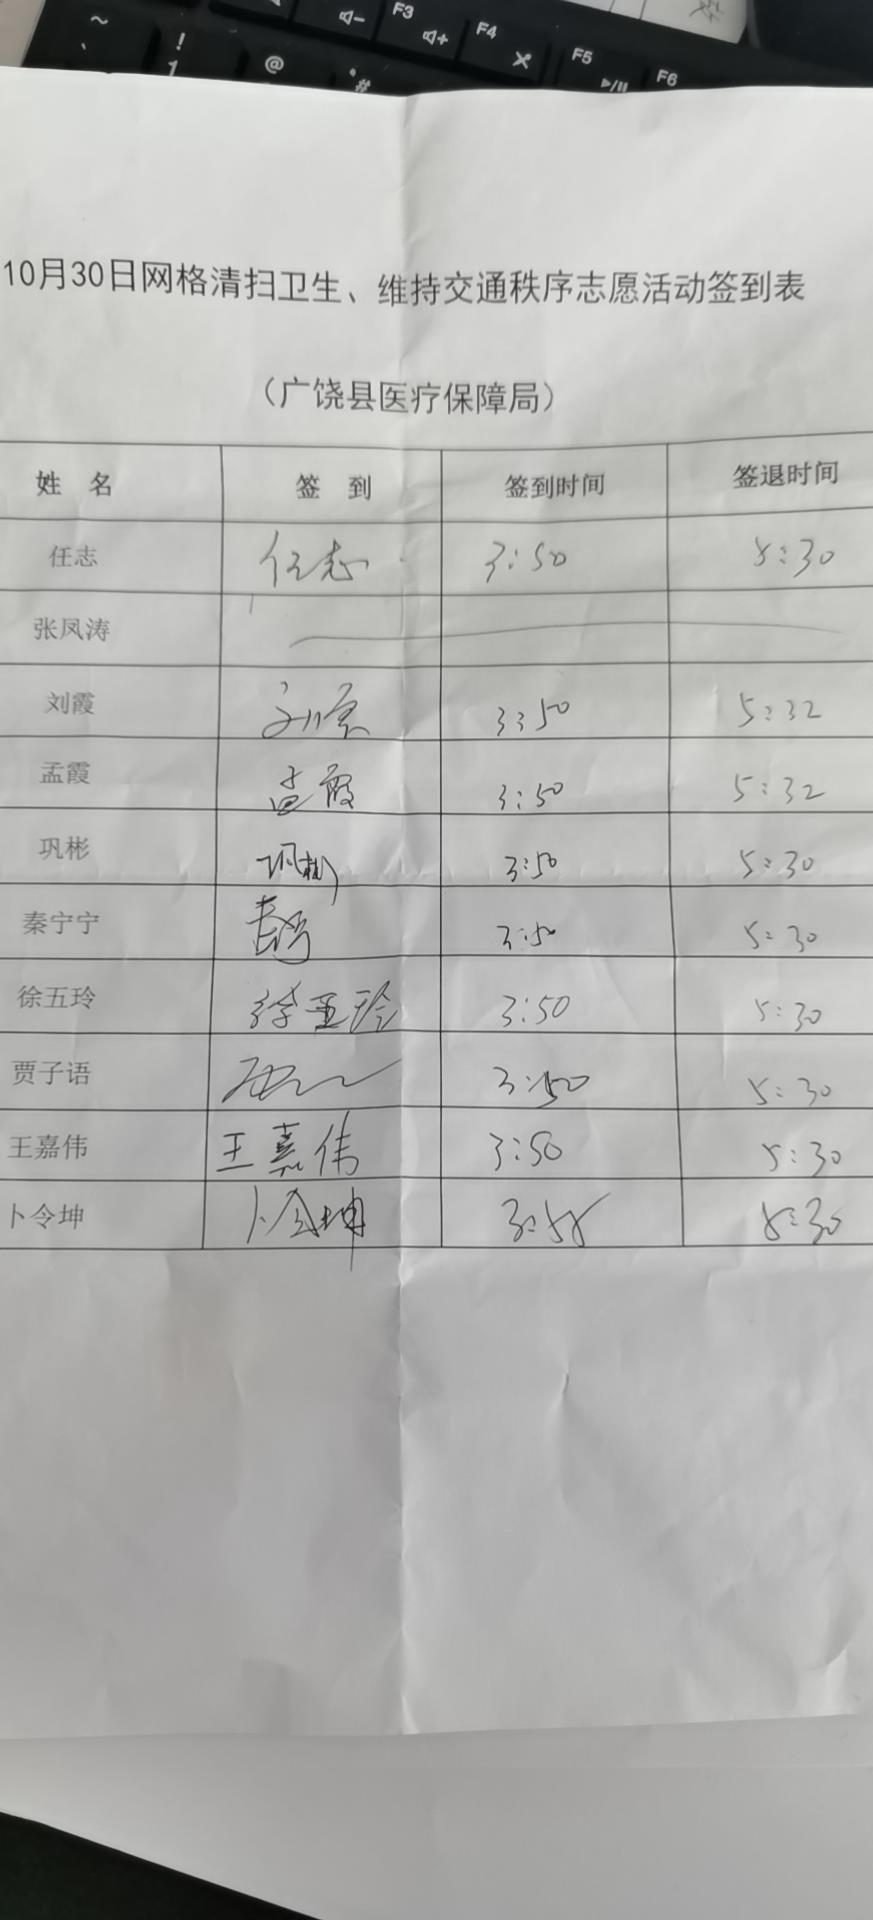 ~
`
!
1
@
#
F3
F4
F5
F6
10月30日网格清扫卫生、维持交通秩序志愿活动签到表
（广饶县医疗保障局）
姓 名 签 到 签到时间 签退时间
任志 任志 3:50 5:30
张凤涛
刘霞 刘霞 3:50 5:32
孟霞 孟霞 3:50 5:32
巩彬 巩彬 3:50 5:30
秦宁宁 3:50 5:30
徐五玲 徐五玲 3:50 5:30
贾子语 3:50 5:30
王嘉伟 王嘉伟 3:50 5:30
卜令坤 卜令坤 3:55 5:30